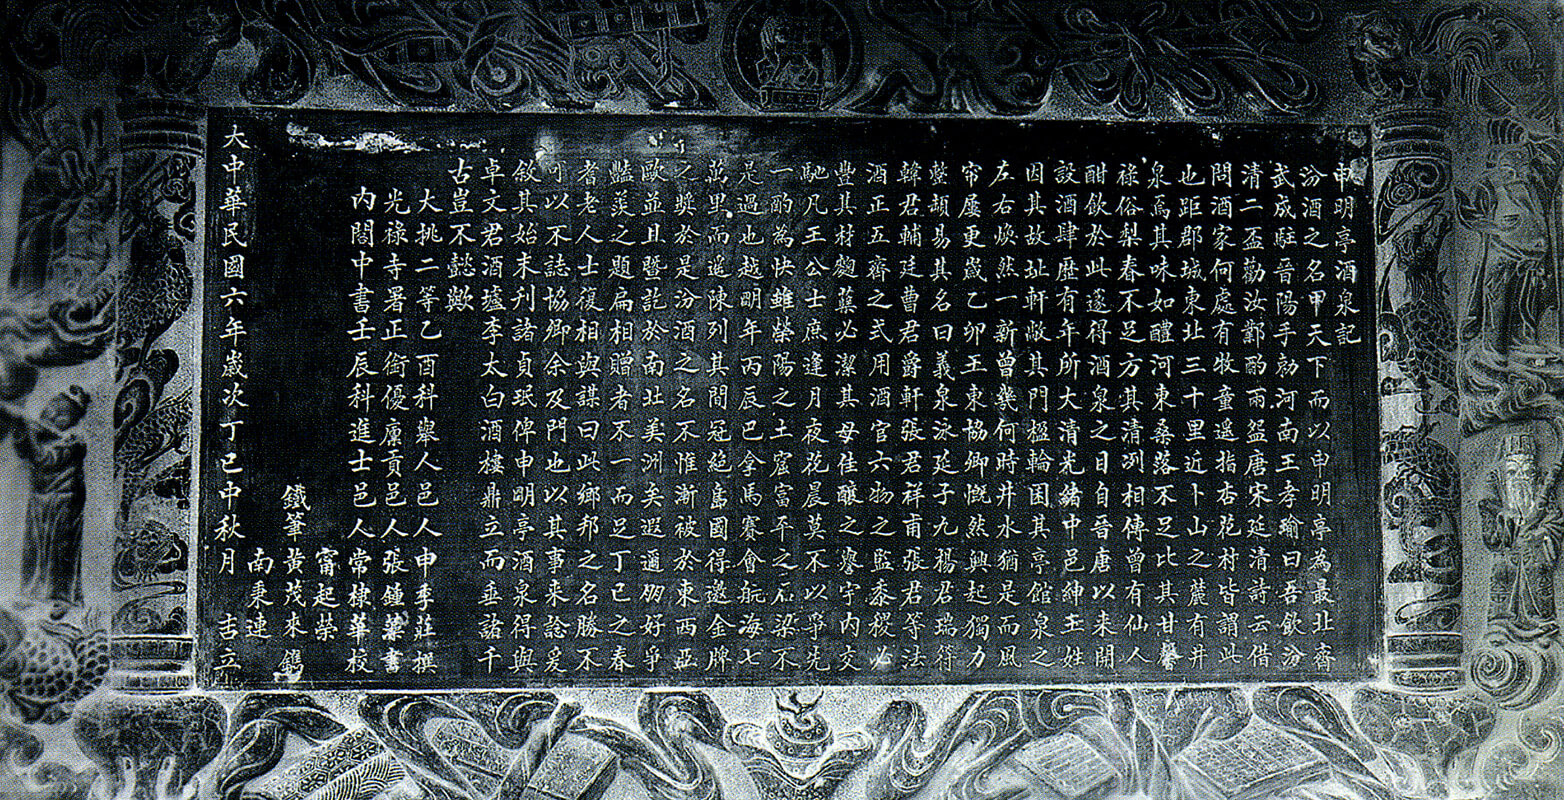 申明亭酒泉記
汾酒之名甲天下而以申明亭為最北齊
武成駐晉陽手勑河南王孝瑜曰吾飲汾
清二盃勸汝鄴酌兩盌唐宋延清詩云借
問酒家何處有牧童遥指杏花村皆謂此
也距郡城東北三十里近卜山之麓有井
泉焉其味如醴河東桑落不足比其甘馨
祿俗梨春不足方其清洌相傳曾有仙人
酣飲於此遂得酒泉之目自晉唐以来開
設酒肆歷有年所大清光緒中邑紳王姓
因其故址軒敞其門楹輪囷其亭館泉之
左右煥然一新曾幾何時井水猶是而風
帘屡更嵗乙卯王東協卿慨然興起獨力
整頓易其名曰義泉泳延子九楊君瑞符
韓君輔廷曹君爵軒張君祥甫張君等法
酒正五齊之式用酒官六物之監黍稷必
豐其材麴蘖必潔其母佳釀之譽宇内交
馳凡王公士庶逢月夜花晨莫不以爭先
一酌為快雖滎陽之土窟富平之石梁不
是過也越明年丙辰巴拿馬賽會航海七
萬里而遥陳列其間冠絶島國得邀金牌
之奬於是汾酒之名不惟漸被於東西亞
歐並且暨訖於南北美洲矣遐邇朂好爭
豔羨之題扁相贈者不一而足丁巳之春
耆老人士復相與謀曰此鄉邦之名勝不
可以不誌協卿余及門也以其事来諗爰
敘其始末刋諸貞珉俾申明亭酒泉得與
卓文君酒壚李太白酒樓鼎立而垂諸千
古豈不懿歟
大挑二等乙酉科舉人邑人申季莊撰
光祿寺署正銜優廩貢邑人張鍾蘂書
内閣中書壬辰科進士邑人常棣華校
甯起榮
鐵筆黃茂來鐫
南秉連
大中華民國六年嵗次丁巳中秋月 吉立